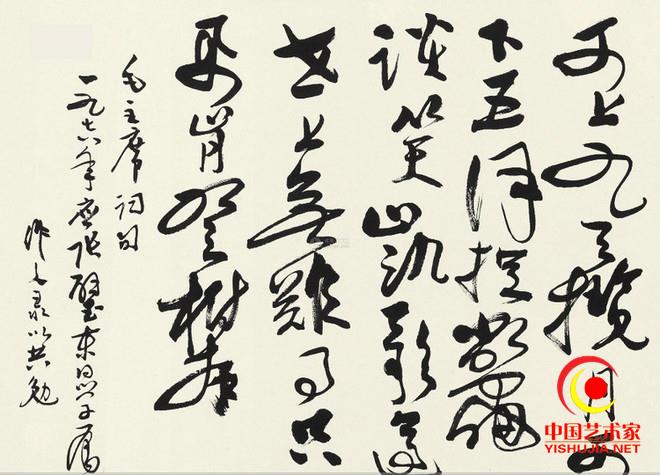 可上九天攬月可
下五洋捉鱉
談笑凱歌還
世上無難事只
要肯登攀
毛主席詞句
一九七六年應
以共勉
中国艺术家
YISHUJIA.NET